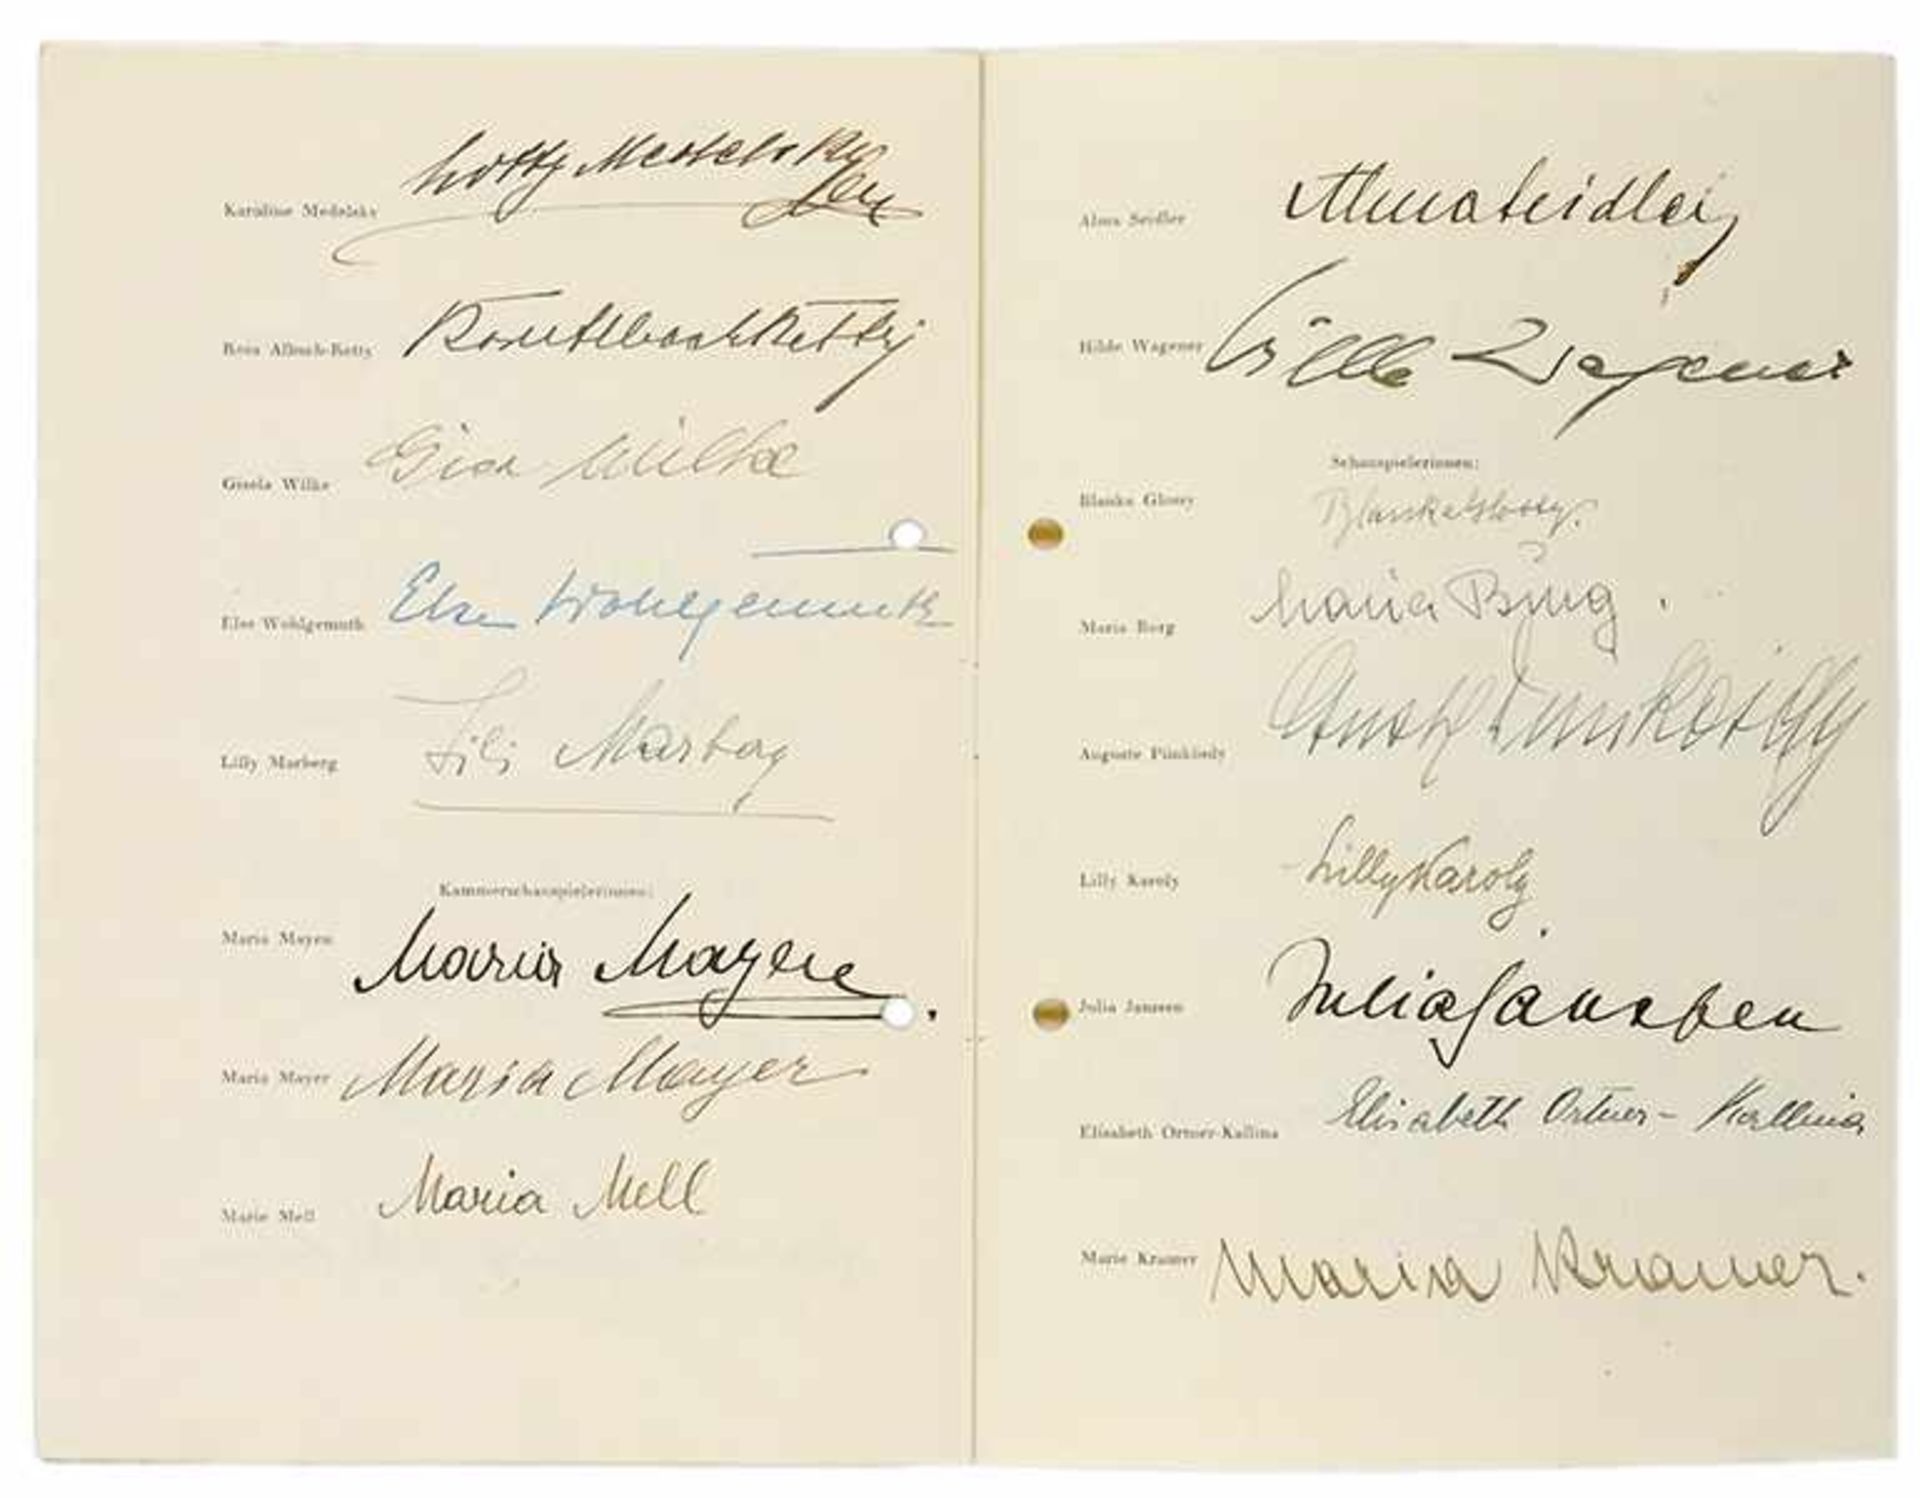 Karoline Medelsky
Lotty Medelsky
Rosa Albach-Retty
Rosa Albach Retty
Gisela Wilke
Gisa Wilke
Else Wohlgemuth
Else Wohlgemuth
Lilly Marberg
Lili Marberg
Kammerschauspielerinnen:
Maria Mayen
Maria Mayen.
Maria Mayer
Maria Mayer
Marie Mell
Maria Mell
Alma Seidler
Alma Seidler
Hilde Wagener
Hilde Wagener
Schauspielerinnen:
Blanka Glossy
Blanka Glossy.
Maria Burg
Maria Burg.
Auguste Pünkösdy
Pünkösdy
Lilly Karoly
Lilly Karoly
Julia Janssen
Julia Janssen
Elisabeth Ortner-Kallina
Elisabeth Ortner-Kallina
Marie Kramer
Maria Kramer.